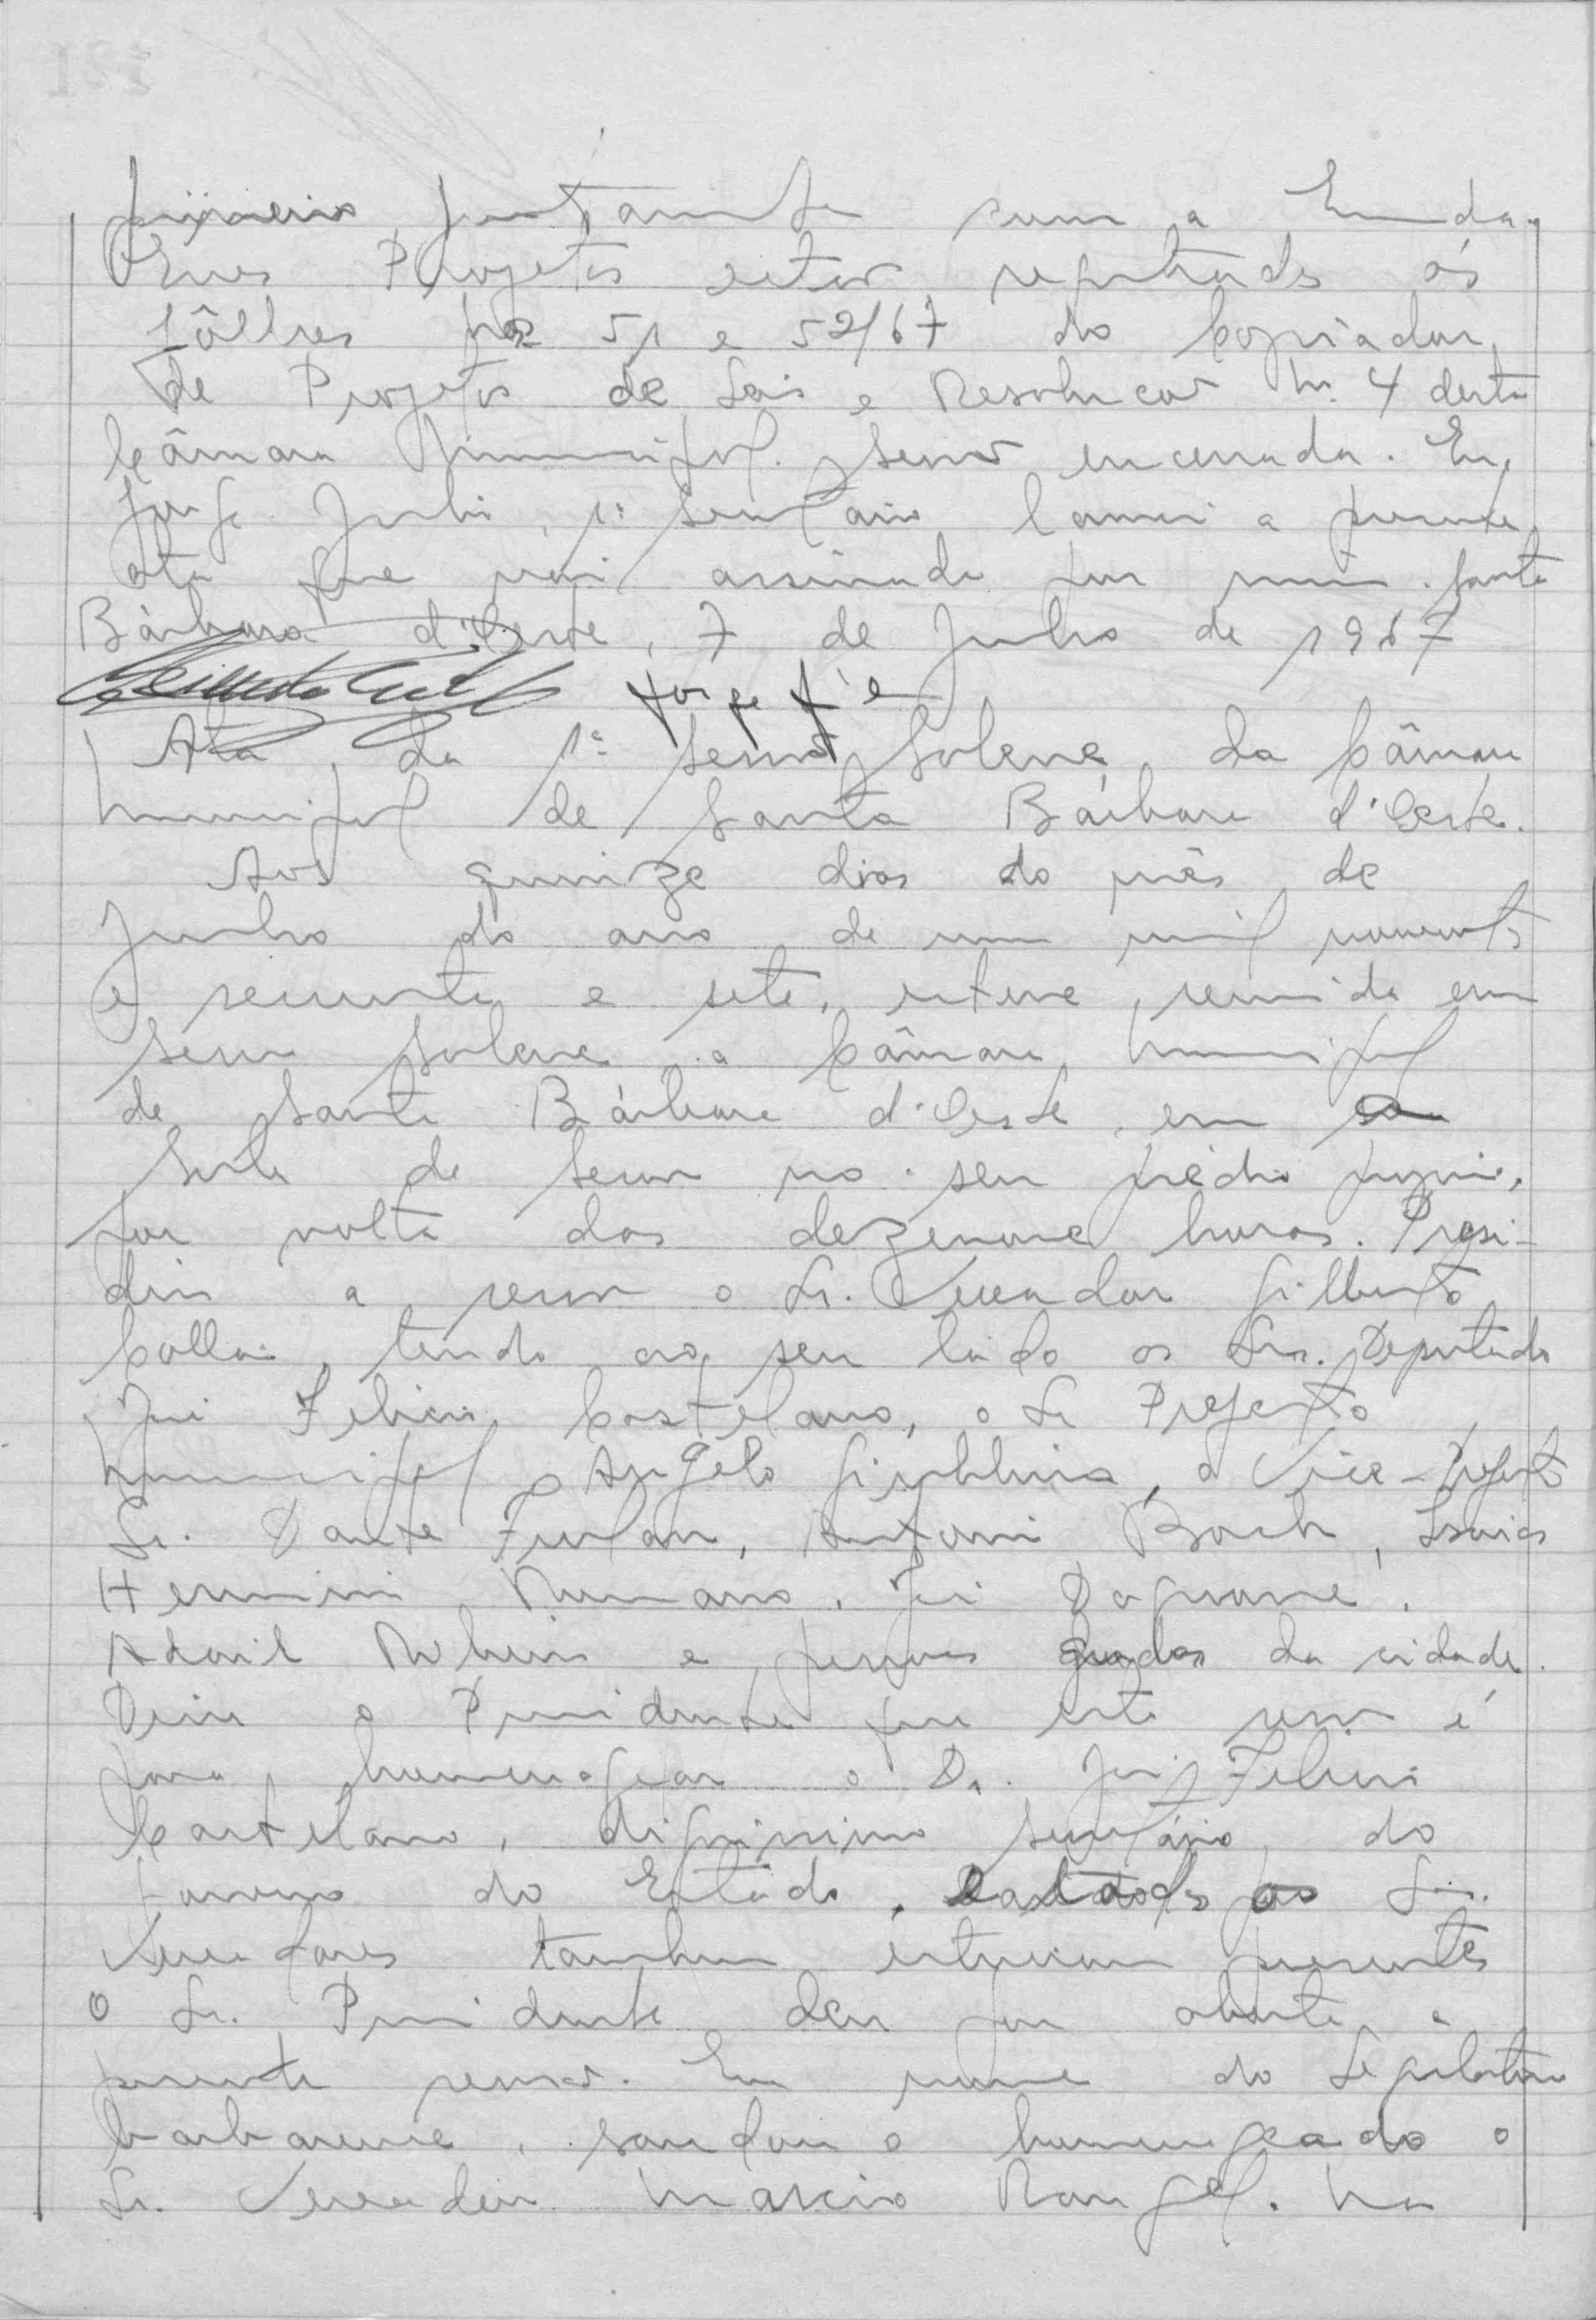 juntamente com a Emenda.
Esses Projetos estão registrados ás
fôlhas nºs 51 e 52/67 do Copiador
de Projetos de Leis e Resolucão n. 4 desta
Câmara Municipal. Sessão encerrada. Eu,
Jorge Julio, 1º Secretário, lavrei a presente
ata que vai assinada por mim. Santa
Bárbara d'Oeste, 7 de Julho de 1967
Jorge
Ata da 1ª Sessão Solene da Câmara
Municipal de Santa Bárbara d'Oeste.
Aos quinze dias do mês de
Junho do ano de um mil novecentos
e sessenta e sete, esteve reunida em
sessão solene a Câmara Municipal
de Santa Bárbara d'Oeste, em
sala de sessão no seu prédio proprio,
por volta das dezenove horas. Presi-
diu a sessão o Sr. Vereador Gilberto
tendo ao seu lado os Srs. Deputado
José Felicio Castelano, o Sr Prefeito
Municipal Angelo Giubbina, o Vice-Prefeito
Sr. Dante Furlan, Antonio Isaias
Herminio Romano, José Dagnone,
Adail e pessoas gradas da cidade.
Disse o Presidente que esta sessão é
para homenagear o Dr. José Felicio
Castelano, dignissimo secretário do
Governo do Estado. os Srs.
Vereadores tambem estiveram presentes
O Sr. Presidente deu por aberta a
presente sessão. Em nome do Legislativo
barbarense, saudou o homenageado o
Sr. Vereador Marcio Rangel. Na